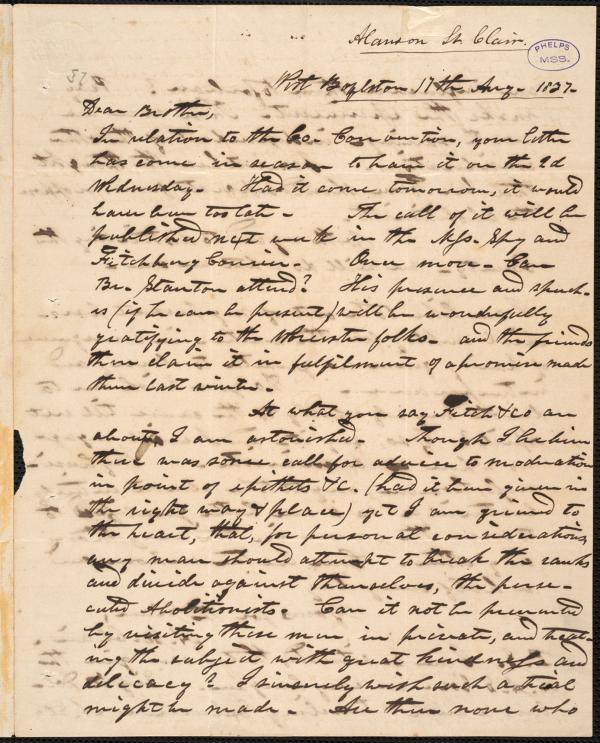 Alanson St. Clair.
PHELPS
MSS.
37
West Boylston 17th Aug. 1837.
Dear Brother,
In relation to the Co. Convention, your letter
has come in season to have it on the 2d
Wednesday. Had it come tomorrow, it would
have been too late. The call of it will be
published next week in the Mss. Spy and
Fitchburg Courier. Once more. Can
Br. Stanton attend? His presence and speech-
es (if he can be present) will be wonderfully
gratifying to the Worcester folks. and the friends
there claim it in fulfilment of a promise made
them last winter.
At what you say Fitch & co are
about, I am astonished. Though I believe
there was some call for advice to moderation
in point of epithets &c. (had it been given in
the right way & place) yet I am grieved to
the heart, that, for personal considerations,
any man should attempt to break the ranks
and divide against themselves, the perse-
cuted Abolitionists. Can it not be prevented
by visiting these men in private, and treat-
ing the subject with great kindness and
delicacy? I sincerely wish such a trial
might be made. Are there none who